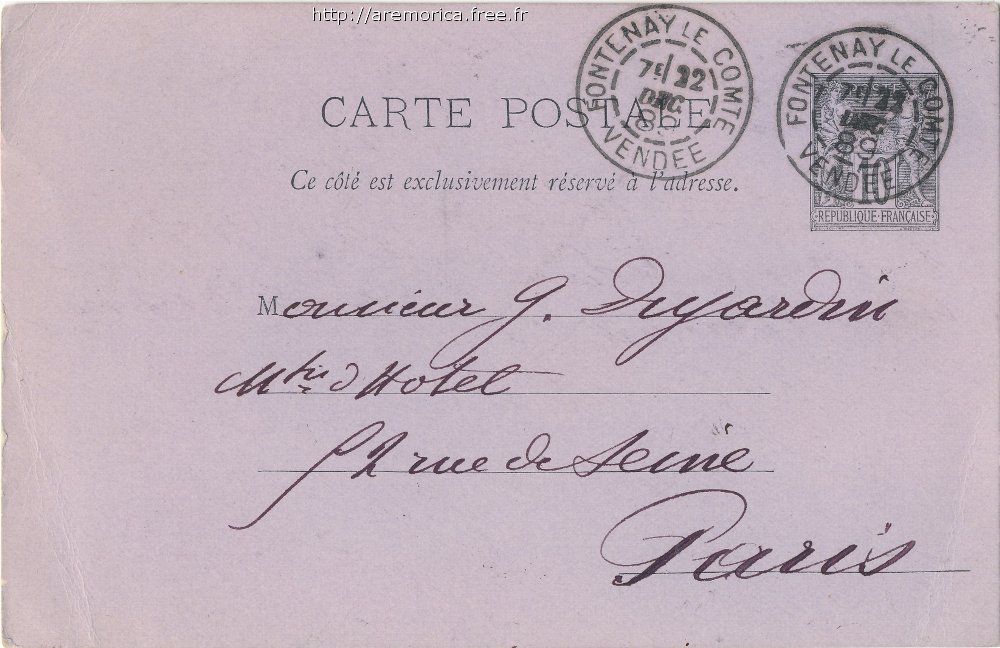 http://aremorica.free.fr
FONTENAY LE COMTE
7E/22
DEC
89
VENDEE
FONTENAY LE COMTE
7E/22
DEC
89
VENDEE
CARTE POSTALE
Ce côté est exclusivement réservé à l'adresse.
10
REPUBLIQUE FRANÇAISE
Monsieur G. Dujardin
Mtre d'Hotel
52 rue de Seine
Paris